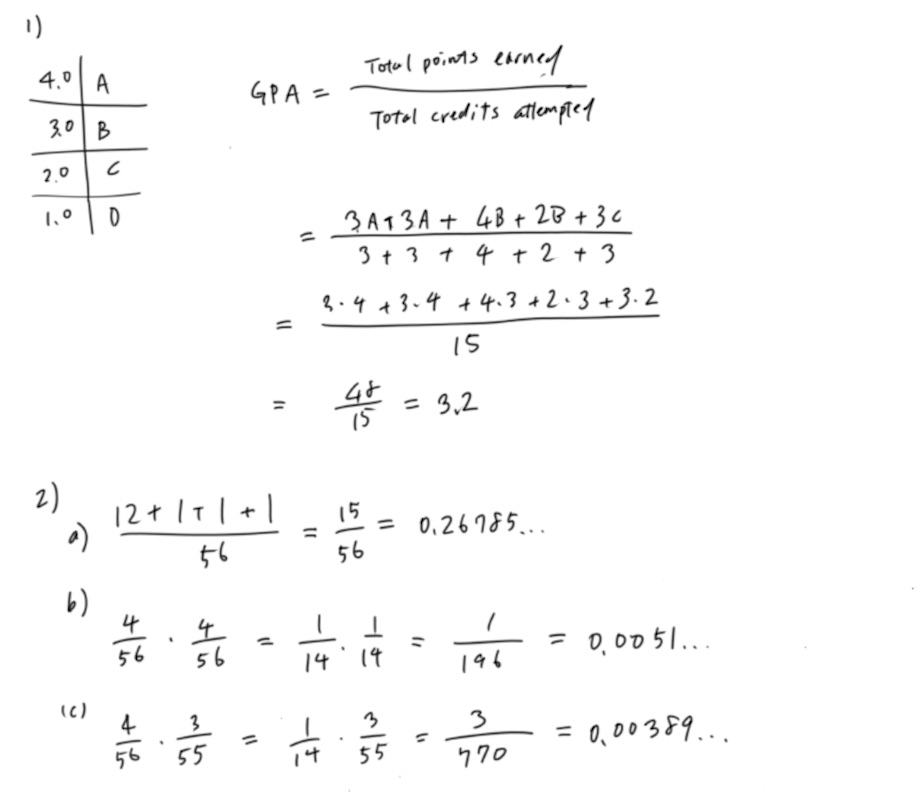 1)
4.0 | A
3.0 | B
2.0 | C
1.0 | D
GPA = Total points earned / Total credits attempted
= (3A + 3A + 4B + 2B + 3C) / (3 + 3 + 4 + 2 + 3)
= (3·4 + 3·4 + 4·3 + 2·3 + 3·2) / 15
= 48/15 = 3.2
2)
a) (12 + 1 + 1 + 1) / 56 = 15/56 = 0.26785...
b)
4/56 · 4/56 = 1/14 · 1/14 = 1/196 = 0.0051...
(c)
4/56 · 3/55 = 1/14 · 3/55 = 3/770 = 0.00389...